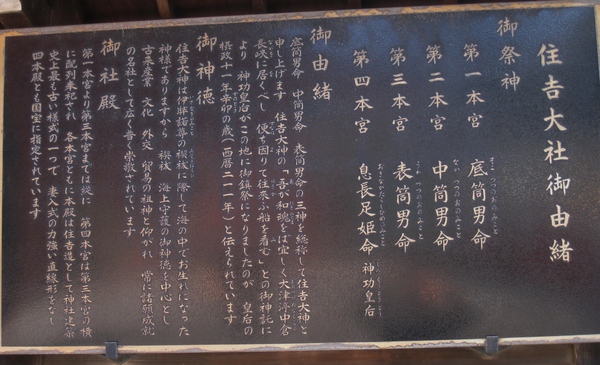 住吉大社御由緒
御祭神
第一本宮 底筒男命
そこつつのおのみこと
第二本宮 中筒男命
なかつつのおのみこと
第三本宮 表筒男命
うわつつのおのみこと
第四本宮 息長足姫命 神功皇后
おきながたらしひめのみこと じんぐうこうごう
御由緒
底筒男命 中筒男命 表筒男命の三神を総称して住吉大神と
申し上げます 住吉大神の「吾が和魂をば宜しく大津渟中倉
長峡に居くべし 便ち因りて往来ふ船を看む」との御神託に
より 神功皇后がこの地に御鎮祭になりましたのが 皇后の
摂政十一年辛卯の歳(西暦二一一年)と伝えられています
御神徳
住吉大神は伊邪諾尊の禊祓に際して海の中でお生れになった
神様でありますから 禊祓 海上守護の御神徳を中心とし
古来産業 文化 外交 貿易の祖神と仰がれ 常に諸願成就
の名社として広く普く崇敬されています
御社殿
第一本宮より第三本宮までは縦に 第四本宮は第三本宮の横
に配列奉祀され 各本宮ともに本殿は住吉造として神社建築
史上最も古い様式の一つで 妻入式の力強い直線形をなし
四本殿とも国宝に指定されています